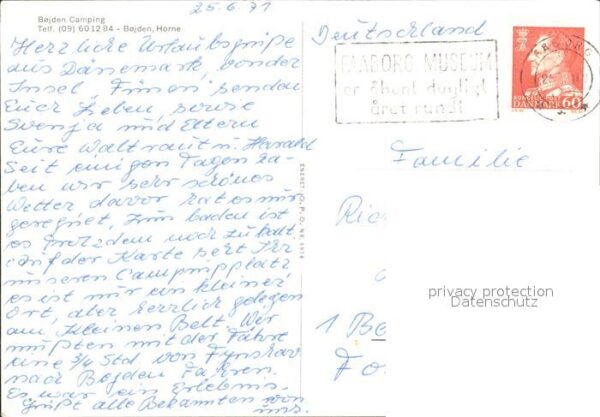 25.6.71
Bøjden Camping
Telf. (09) 60 12 84 - Bøjden, Horne
Herzliche Urlaubsgrüße
aus Dänemark, von der
Insel Fünen senden
Euch Lieben, sowie
Svenja und Eltern
Eure Waltraut u. Harald
Seit einigen Tagen ha-
ben wir sehr schönes
Wetter davor hat es nur
geregnet, zum baden ist
es trotzdem noch zu kalt.
Auf der Karte seht Ihr
unseren Campingplatz
es ist nur ein kleiner
Ort, aber herrlich gelegen
am Kleinen Belt. Wir
mußten mit der Fähre
eine 3/4 Std. von Fynshav
nach Bøjden fahren.
Es war ein Erlebnis.
Grüße alle Bekannten von
uns.
ENERET
Deutschland
FAABORG MUSEUM
er åbent dagligt
året rundt
DANMARK 60
Familie
Ri
1 Be
Fo
privacy protection
Datenschutz